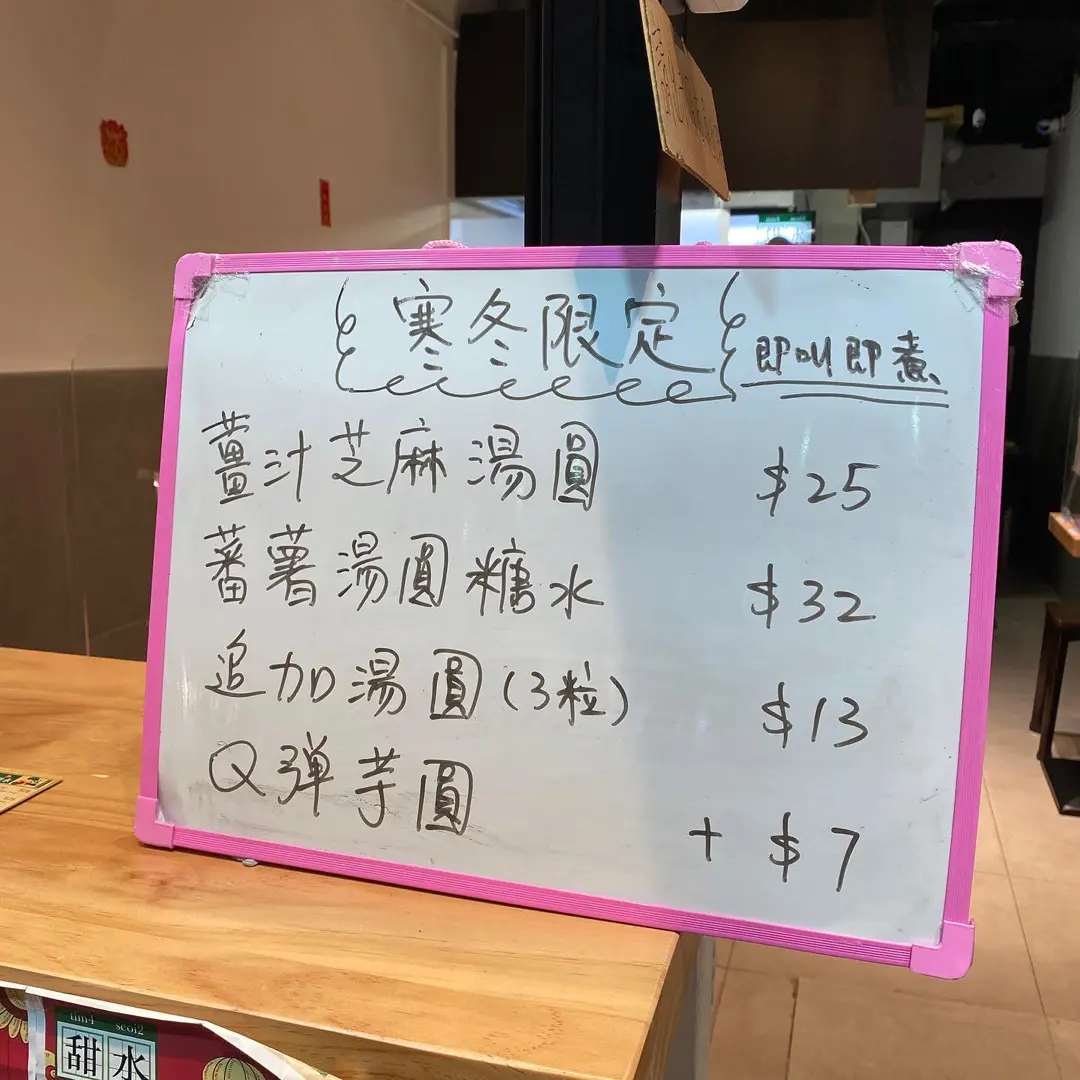 寒冬限定 即叫即煮
薑汁芝麻湯圓 $25
蕃薯湯圓糖水 $32
追加湯圓(3粒) $13
Q弹芋圓 + $7
tim4 seoi2
甜水